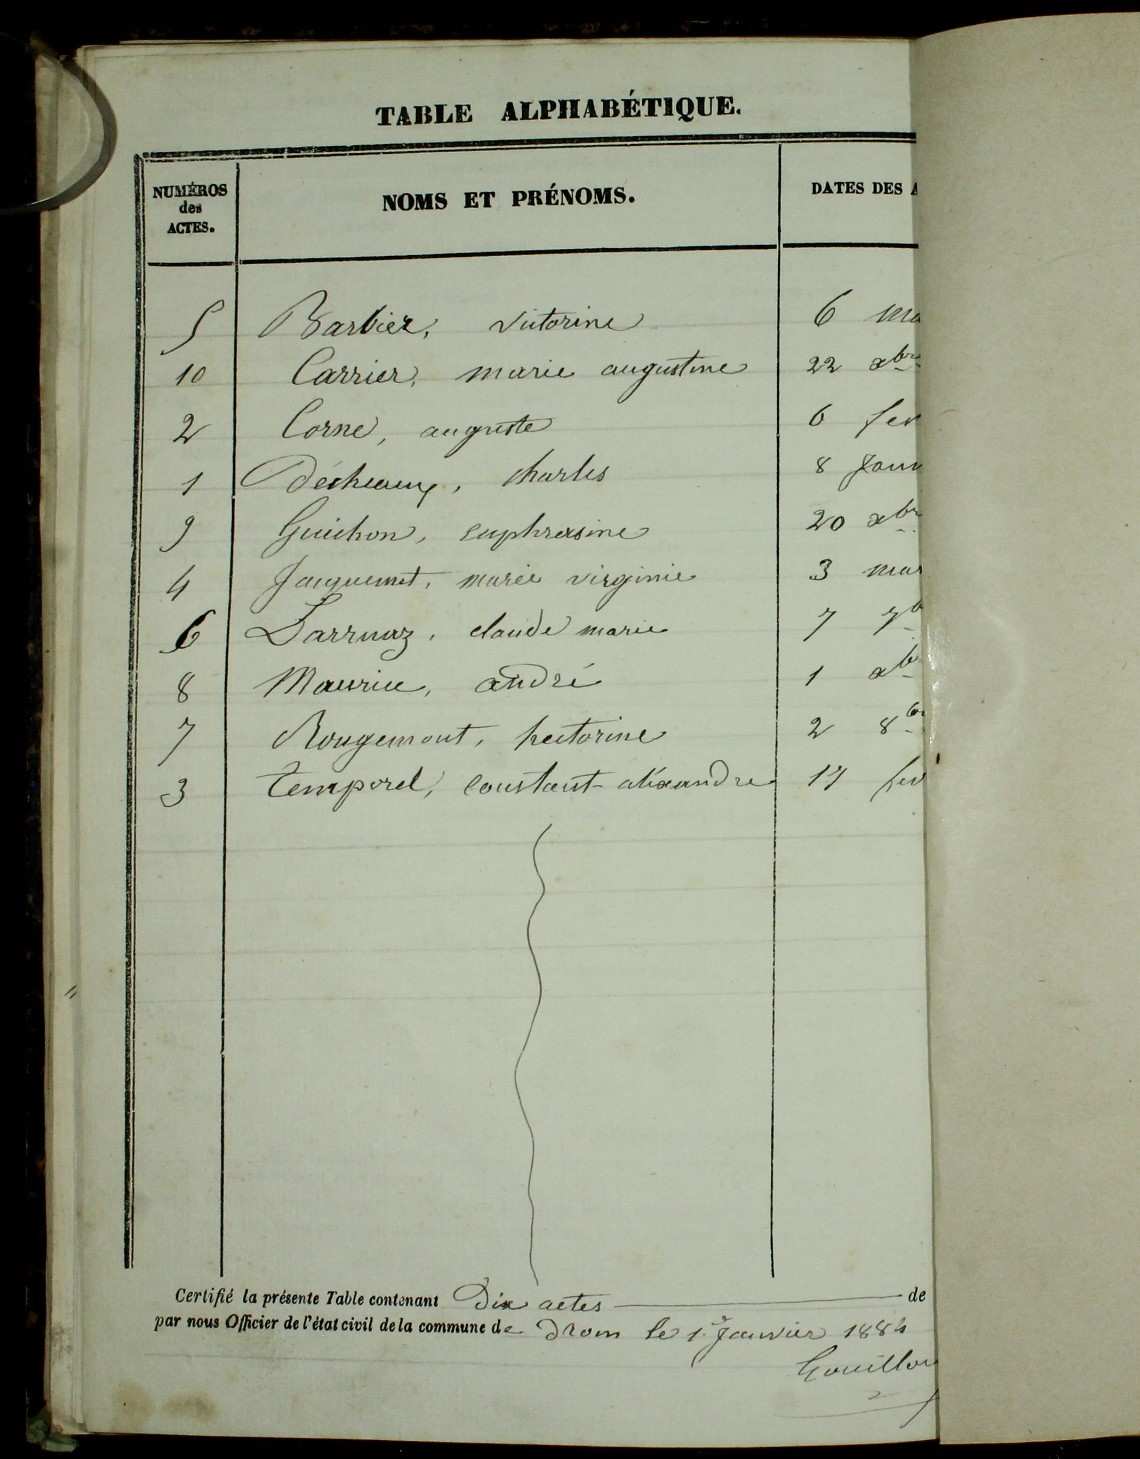 TABLE ALPHABÉTIQUE.
NUMÉROS des ACTES. NOMS ET PRÉNOMS. DATES DES A
5 Barbier, victorine 6 ma
10 Carrier, marie augustine 22 xbre
2 Corne, auguste 6 fev
1 Décheaux, charles 8 Janv
9 Guichon, euphrasine 20 xbr
4 Jacquemet, marie virginie 3 mar
6 Larruaz, claude marie 7 7b
8 Maurice, andré 1 xbr
7 Rougemont, hectorine 2 8br
3 temporel, constant alixandre 17 fev
Certifié la présente Table contenant Dix actes de
par nous Officier de l'état civil de la commune de Drom le 1er Janvier 1884
Gouillou